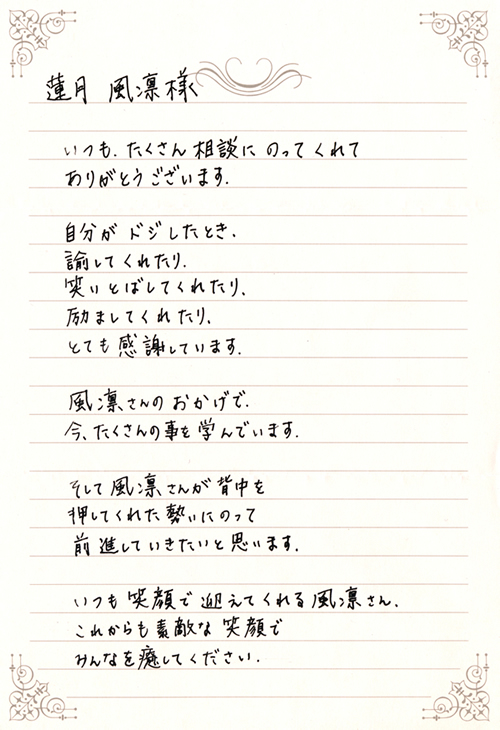 蓮月 風凛様
いつも、たくさん相談にのってくれて
ありがとうございます。
自分がドジしたとき、
諭してくれたり、
笑いとばしてくれたり、
励ましてくれたり、
とても感謝しています。
風凛さんのおかげで、
今、たくさんの事を学んでいます。
そして風凛さんが背中を
押してくれた勢いにのって
前進していきたいと思います。
いつも笑顔で迎えてくれる風凛さん。
これからも素敵な笑顔で
みんなを癒してください。